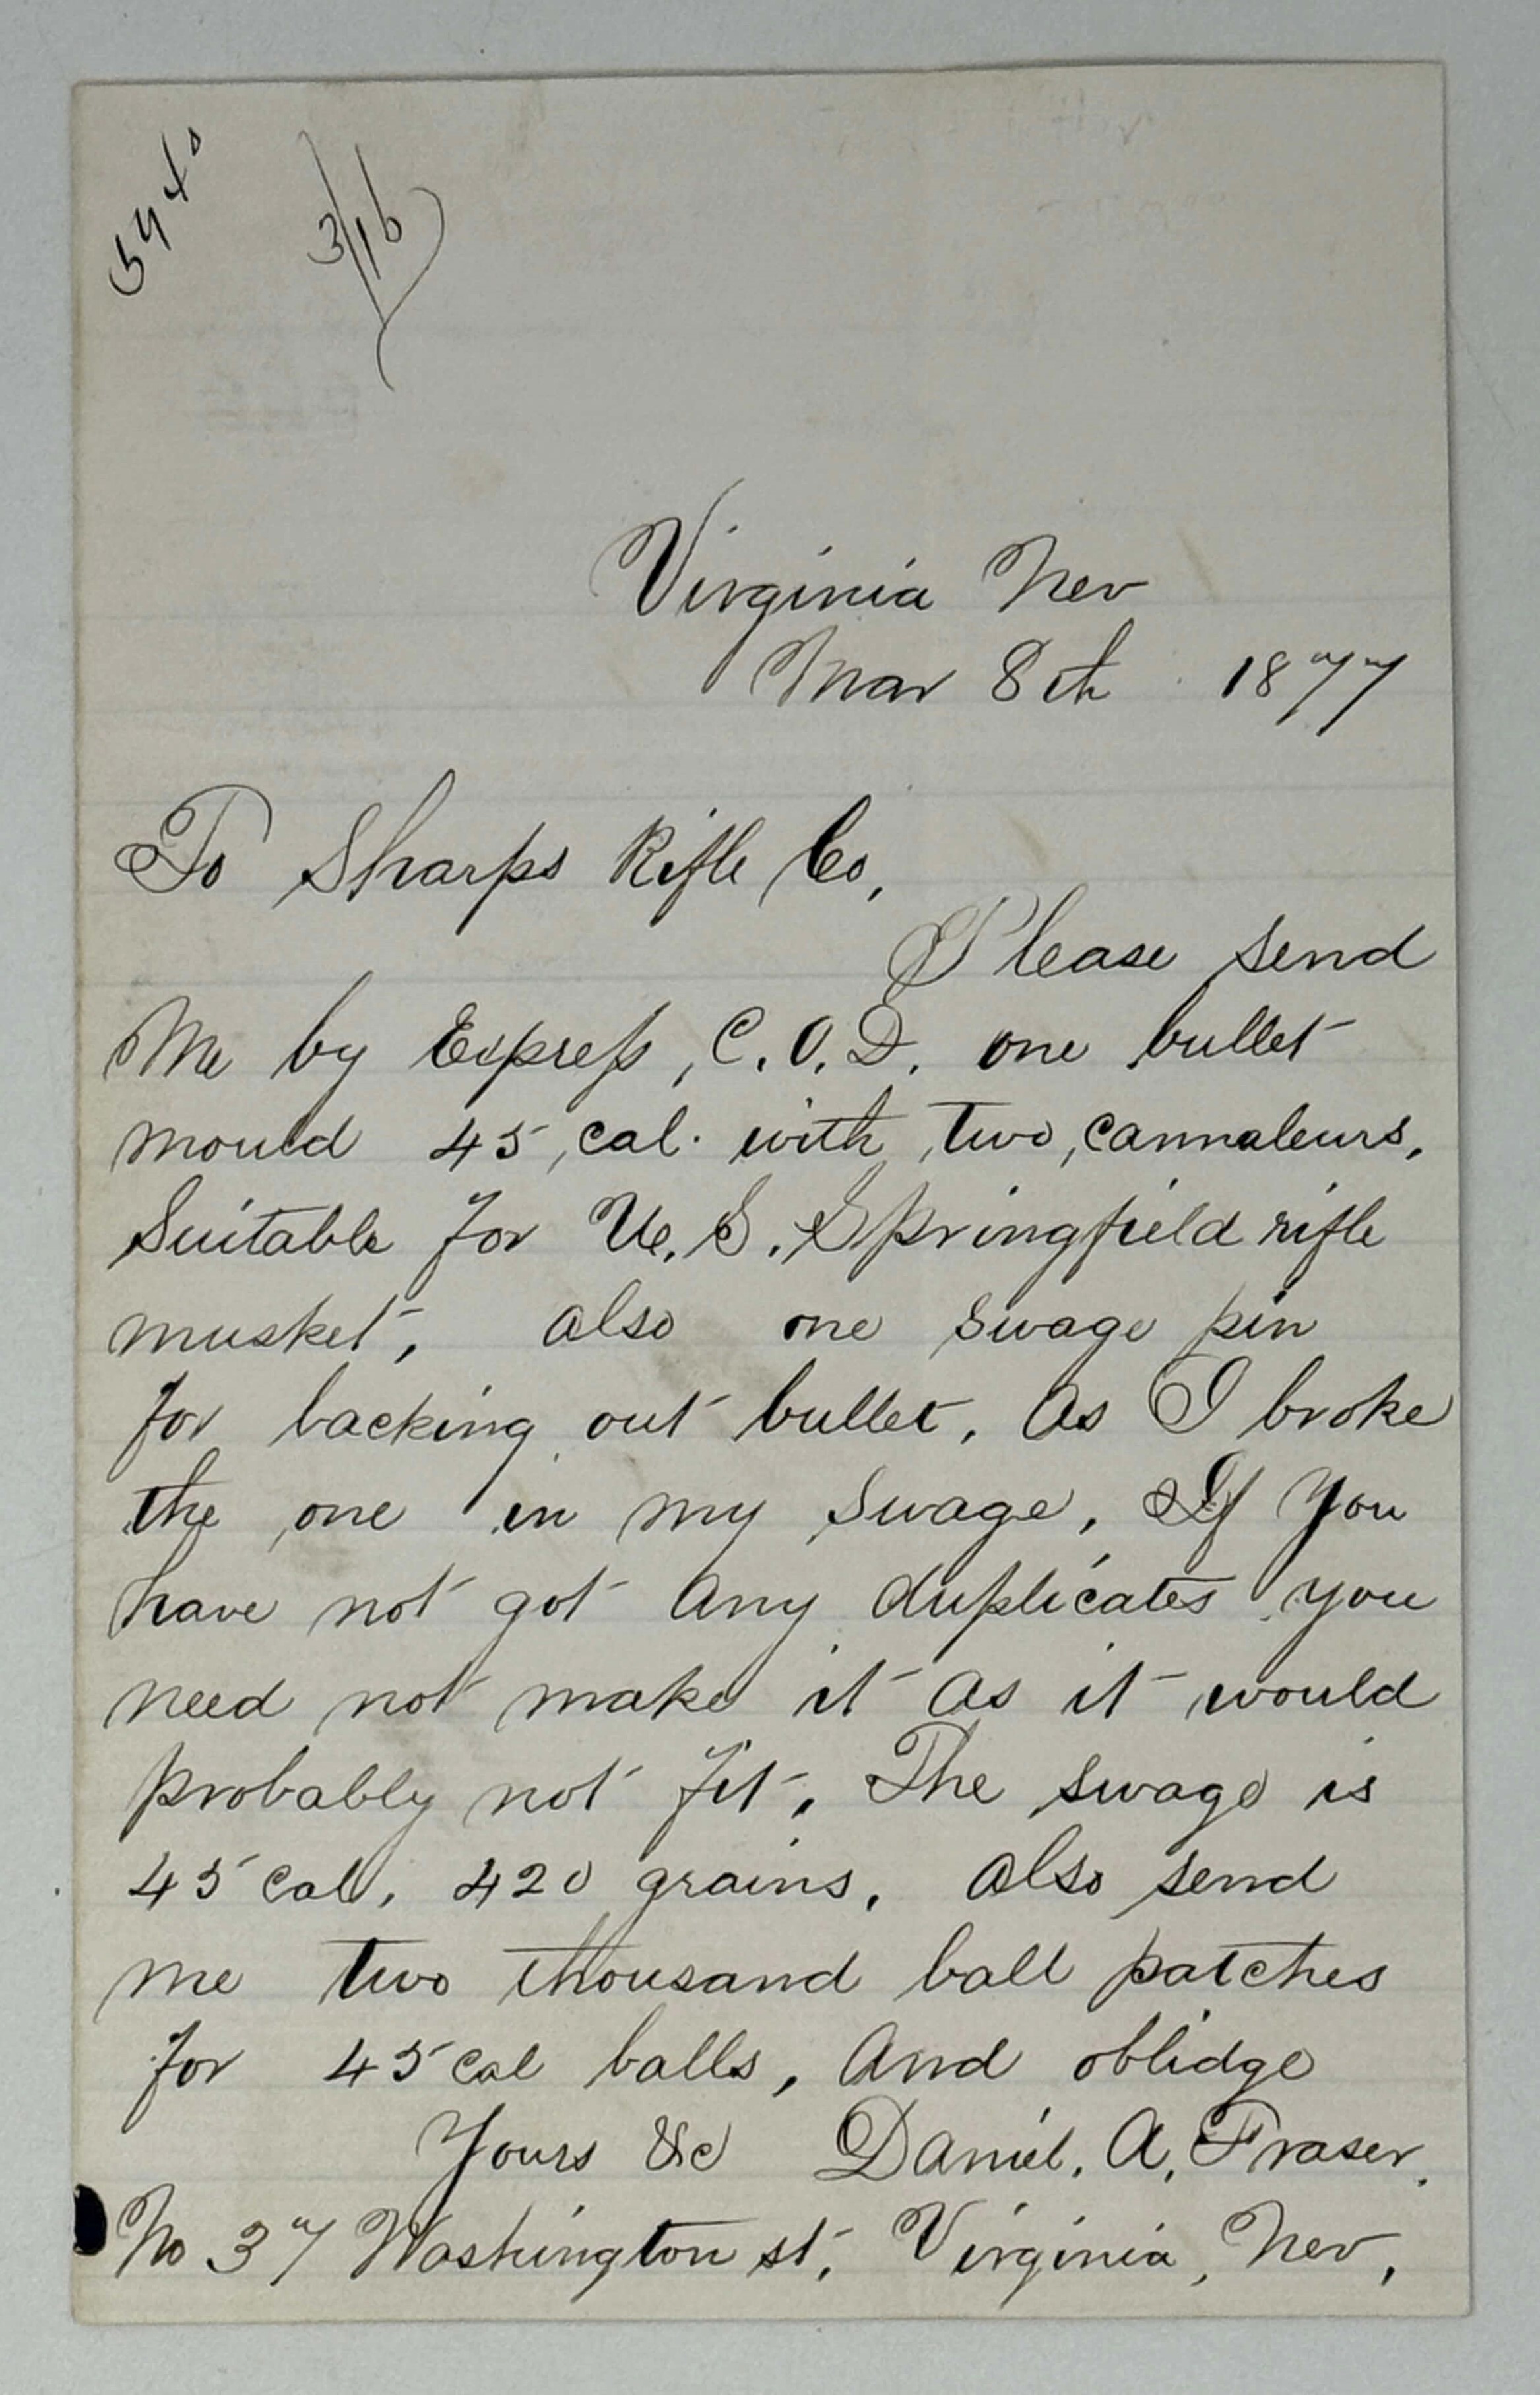 5940
3/16
Virginia Nev
Mar 8th 1877
To Sharps Rifle Co,
Please send
Me by Express, C.O.D. one bullet
mould 45, cal. with, two, cannaleurs,
Suitable for U.S. Springfield rifle
musket, also one swage pin
for backing out bullet, as I broke
the one in my swage, If you
have not got any duplicates you
need not make it as it would
probably not fit, The swage is
45 cal, 420 grains, also send
me two thousand ball patches
for 45 cal balls, and oblidge
Yours &c Daniel. A. Fraser.
No 37 Washington st, Virginia, Nev,